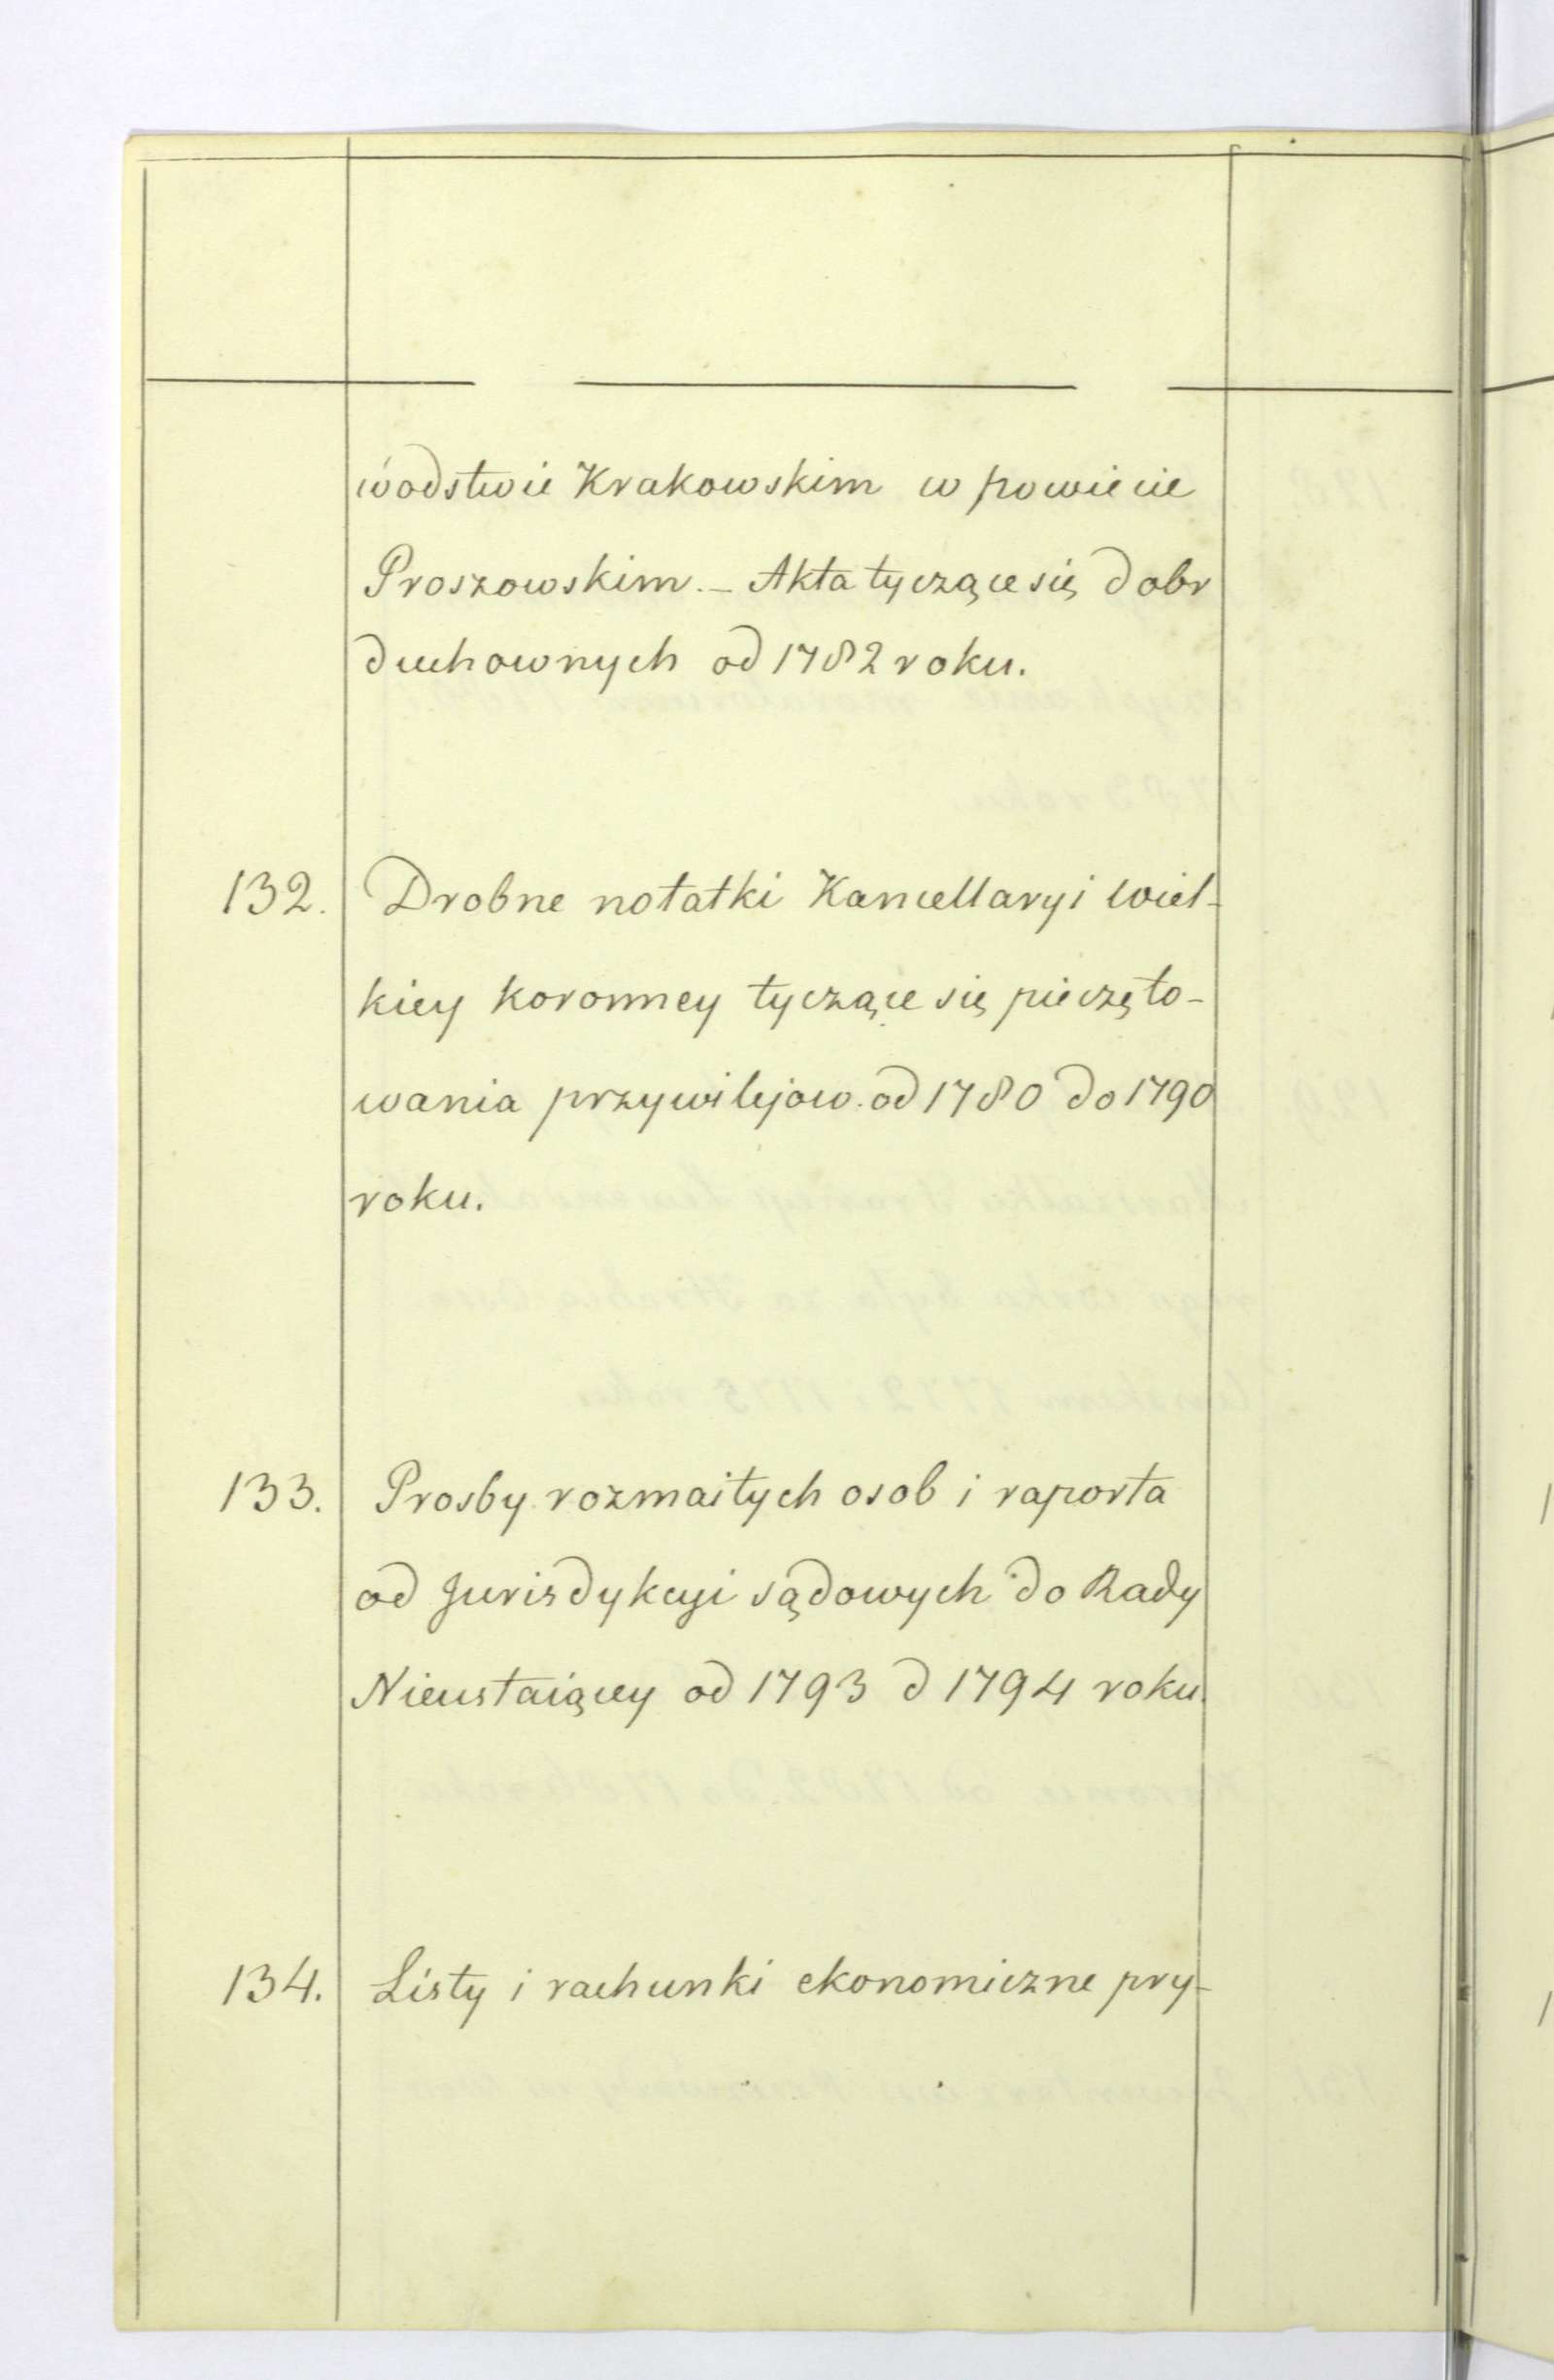 wodstwie Krakowskim w powiecie
Proszowskim. – Akta tyczące się dobr
duchownych od 1782 roku.
132. Drobne notatki Kancellaryi Wiel-
kiey koronney tyczące się pieczęto-
wania przywilejow od 1780 do 1790
roku.
133. Prosby rozmaitych osob i raporta
od Jurisdykcyi sądowych do Rady
Nieustaiącey od 1793 d 1794 roku.
134. Listy i rachunki ekonomiczne pry-